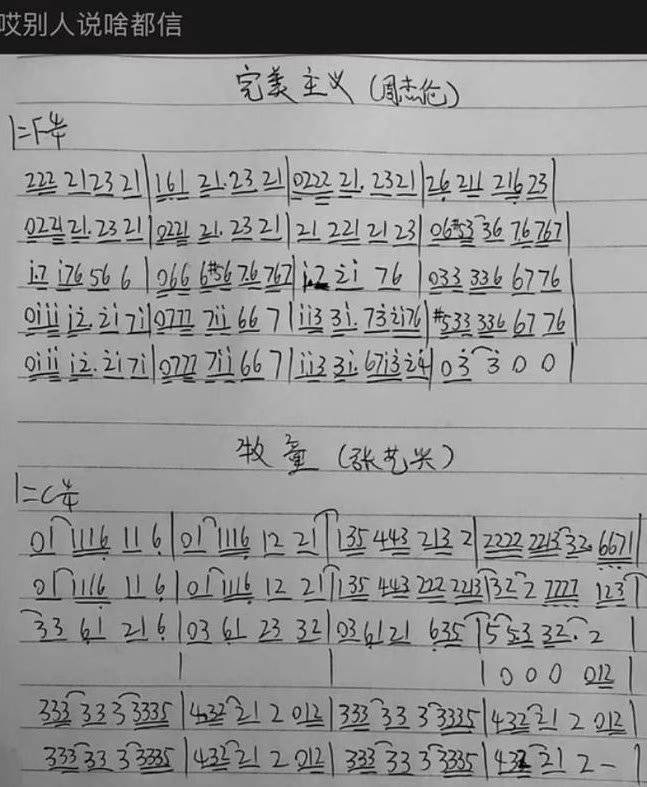 哎别人说啥都信
完美主义(周杰伦)
1=F 4/4
222 2123 21|161 21.23 21|0222 21. 2321|26 211 216 23|
0221 21.23 21|0221 21.23 21|21 221 21 23|06#53 36 76 767|
i.7 i76 56 6|066 6#56 7.6 767|i.7 2i 76|033 336 6776|
0iii i2. 2i 7i|0777 7ii 66 7|ii3 3i. 73 2i76|#533 336 67 76|
0iii i2. 2i 7i|0777 7ii 66 7|ii3 3i. 67i3 24|03 3 0 0|
牧童(张艺兴)
1=C 4/4
01 1116 11 6|01 1116 12 21|135 443 213 2|2222 2213 32. 6671|
01 1116 11 6|01 1116 12 21|135 443 222 2213|32 2 7777 123|
33 61 21 6|03 61 23 32|03 61 21 635|5 553 32. 2|
| | |000 012|
333 33 3 3335|432 21 2 012|333 33 3 3335|432 21 2 012|
333 33 3 3335|432 21 2 012|333 33 3 3335|432 21 2 -|